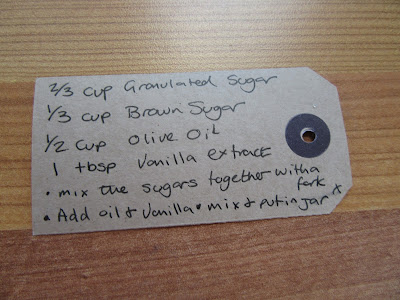 2/3 cup Granulated Sugar
1/3 cup Brown Sugar
1/2 cup Olive Oil
1 tbsp Vanilla extract
• mix the sugars together with a fork
• Add oil & Vanilla • mix & put in jar x